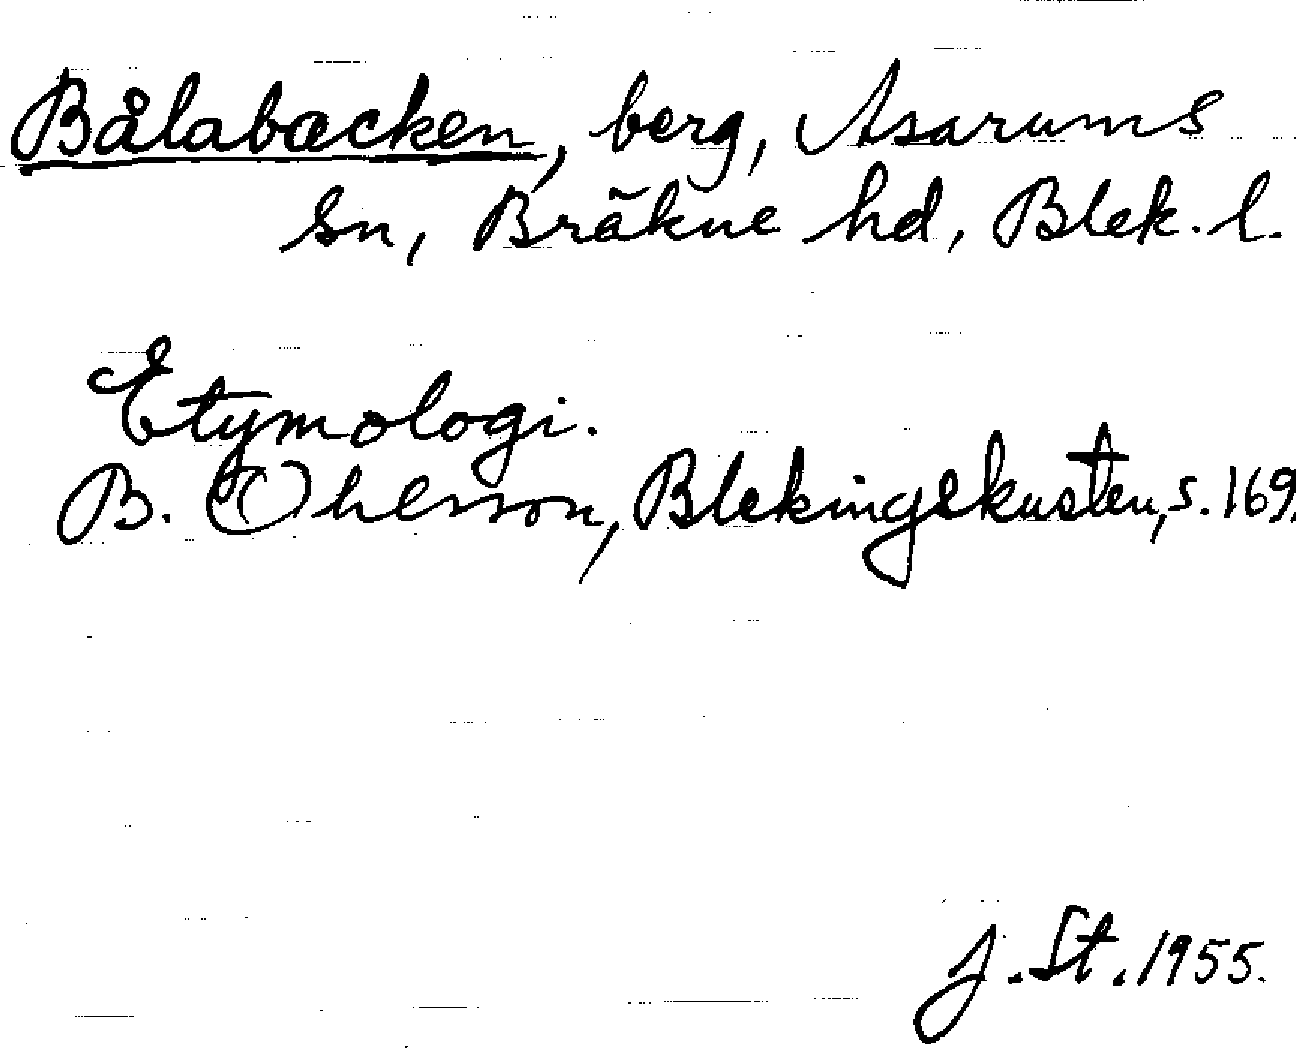 Bålabacken, berg, Asarums
sn, Bräkne hd, Blek. l.
Etymologi.
B. Ohlsson, Blekingekusten, s. 169.
J. St. 1955.